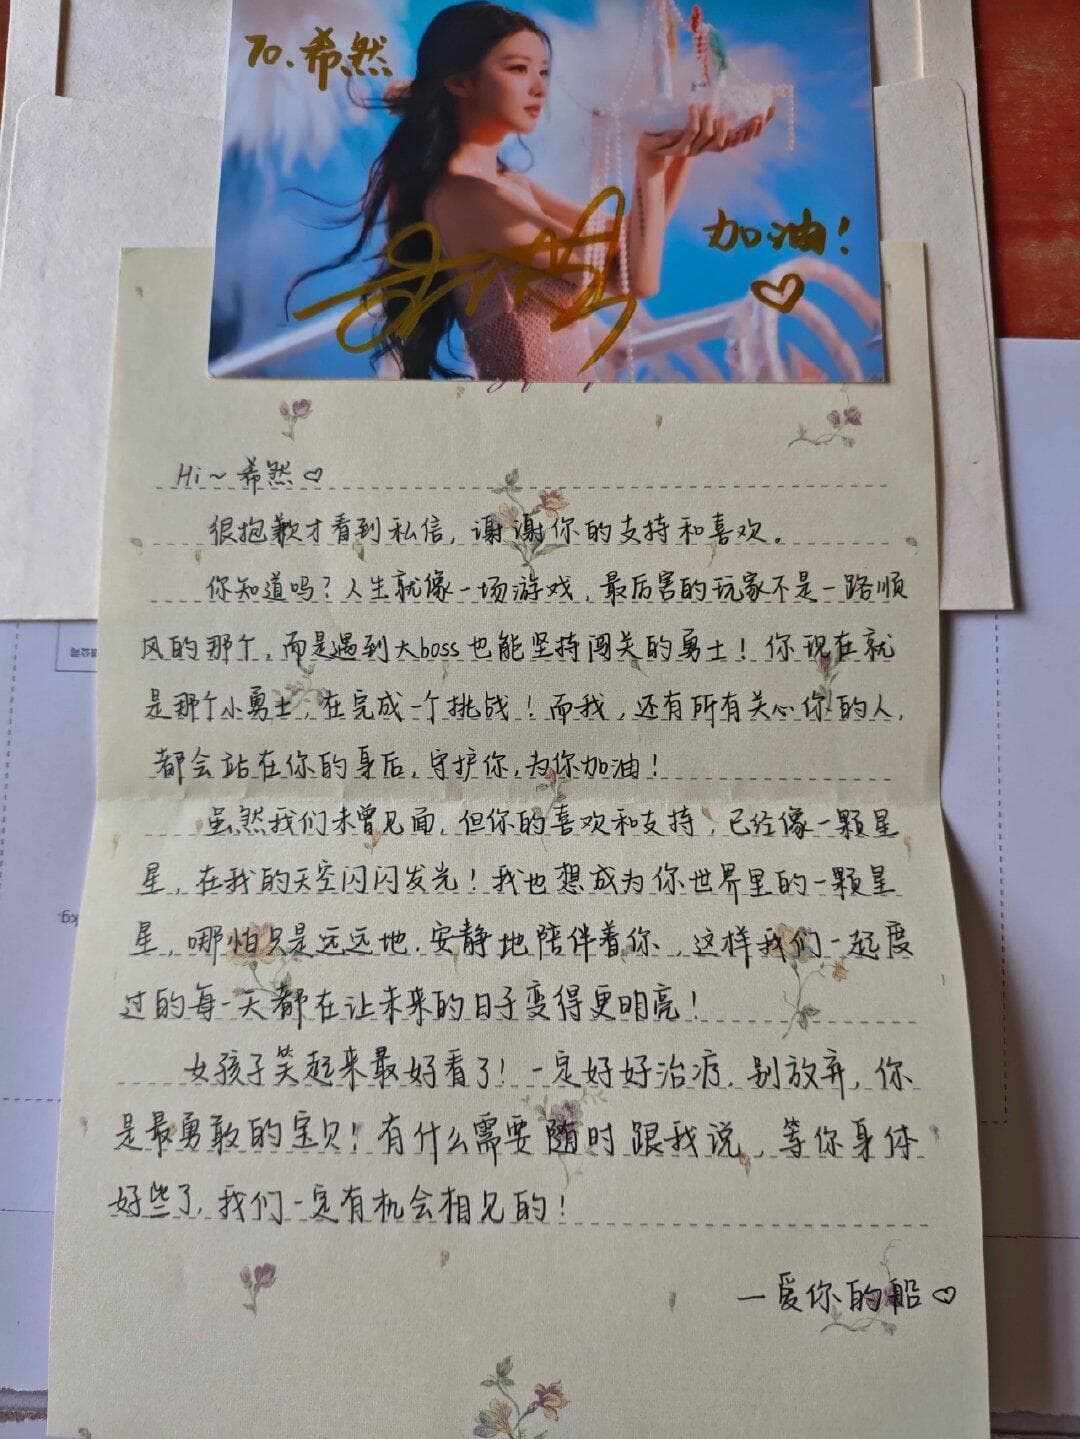 To.希然
加油!
Hi~希然♡
很抱歉才看到私信,谢谢你的支持和喜欢。
你知道吗?人生就像一场游戏,最厉害的玩家不是一路顺
风的那个,而是遇到大boss也能坚持闯关的勇士!你现在就
是那个小勇士,在完成一个挑战!而我,还有所有关心你的人,
都会站在你的身后,守护你,为你加油!
虽然我们未曾见面,但你的喜欢和支持,已经像一颗星
星,在我的天空闪闪发光!我也想成为你世界里的一颗星
星,哪怕只是远远地.安静地陪伴着你,这样我们一起度
过的每一天都在让未来的日子变得更明亮!
女孩子笑起来最好看了!一定好好治疗.别放弃,你
是最勇敢的宝贝!有什么需要随时跟我说,等你身体
好些了,我们一定有机会相见的!
—爱你的船♡
kg.